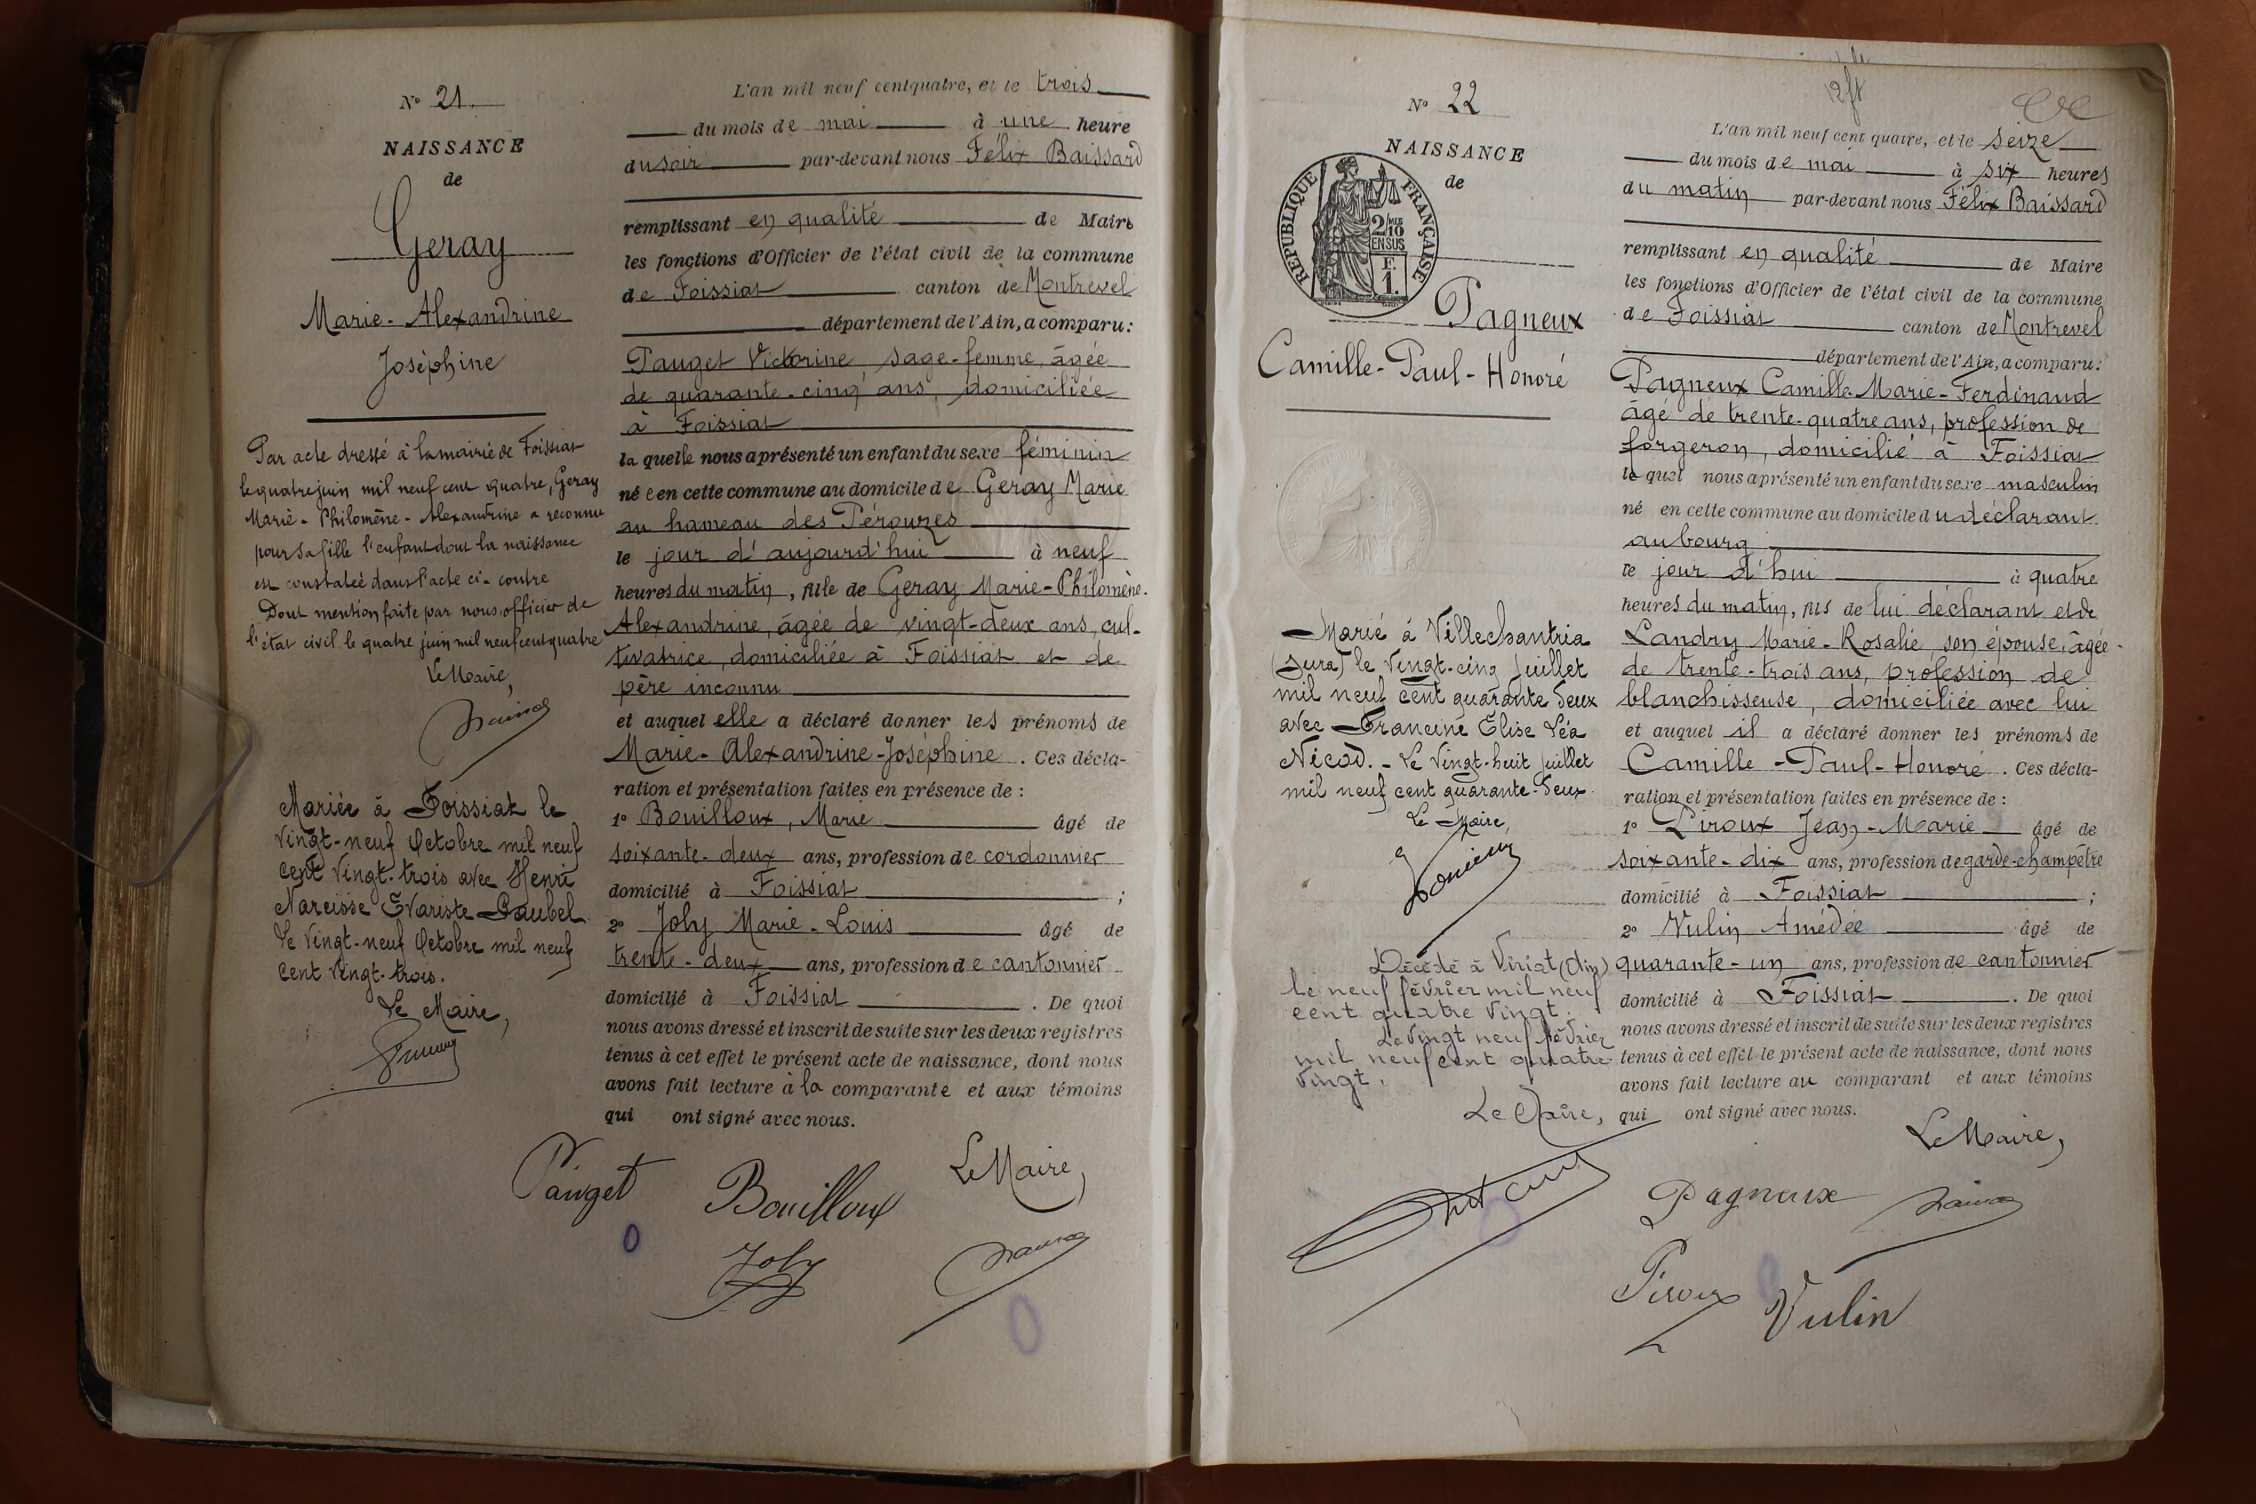 N° 21.
NAISSANCE
de
Geray
Marie-Alexandrine
Joséphine
Par acte dressé à la mairie de Foissiat
le quatre juin mil neuf cent quatre, Geray
Marie-Philomène-Alexandrine a reconnu
pour sa fille l'enfant dont la naissance
est constatée dans l'acte ci-contre
Dont mention faite par nous officier de
l'état civil le quatre juin mil neuf cent quatre
Le Maire,
Mariée à Foissiat le
vingt-neuf Octobre mil neuf
cent vingt-trois avec Henri
Narcisse Evariste Paubel
Le vingt-neuf Octobre mil neuf
cent vingt-trois.
Le Maire,
L'an mil neuf cent quatre, et le trois
du mois de mai à une heure
du soir par-devant nous Félix Baissard
remplissant en qualité de Maire
les fonctions d'Officier de l'état civil de la commune
de Foissiat canton de Montrevel
département de l'Ain, a comparu:
Pauget Victorine, sage-femme, âgée
de quarante-cinq ans, domiciliée
à Foissiat
la quelle nous a présenté un enfant du sexe féminin
né e en cette commune au domicile de Geray Marie
au hameau des Pérouzes
le jour d'aujourd'hui à neuf
heures du matin, fille de Geray Marie-Philomène-
Alexandrine, âgée de vingt-deux ans, cul-
tivatrice, domiciliée à Foissiat et de
père inconnu
et auquel elle a déclaré donner les prénoms de
Marie-Alexandrine-Joséphine. Ces décla-
ration et présentation faites en présence de :
1° Bouilloux, Marie âgé de
soixante-deux ans, profession de cordonnier
domicilié à Foissiat ;
2° Joly Marie-Louis âgé de
trente-deux ans, profession de cantonnier
domicilié à Foissiat. De quoi
nous avons dressé et inscrit de suite sur les deux registres
tenus à cet effet le présent acte de naissance, dont nous
avons fait lecture à la comparante et aux témoins
qui ont signé avec nous.
Le Maire,
Pauget Bouilloux
Joly
N° 22
NAISSANCE
de
RÉPUBLIQUE FRANÇAISE
2/10
EN SUS
F.
1.
Pagneux
Camille-Paul-Honoré
Marié à Villechantria
(Jura) le vingt-cinq Juillet
mil neuf cent quarante deux
avec Francine Elise Léa
Nicod. - Le vingt-huit Juillet
mil neuf cent quarante-deux.
Le Maire,
Décédé à Viriat (Ain)
le neuf février mil neuf
cent quatre vingt.
Le vingt neuf février
mil neuf cent quatre-
vingt.
Le Maire,
L'an mil neuf cent quatre, et le seize
du mois de mai à six heures
du matin par-devant nous Félix Baissard
remplissant en qualité de Maire
les fonctions d'Officier de l'état civil de la commune
de Foissiat canton de Montrevel
département de l'Ain, a comparu:
Pagneux Camille-Marie-Ferdinand
âgé de trente-quatre ans, profession de
forgeron, domicilié à Foissiat
le quel nous a présenté un enfant du sexe masculin
né en cette commune au domicile du déclarant
au bourg
le jour d'hui à quatre
heures du matin, fils de lui déclarant et de
Landry Marie-Rosalie, son épouse, âgée
de trente-trois ans, profession de
blanchisseuse, domiciliée avec lui
et auquel il a déclaré donner les prénoms de
Camille-Paul-Honoré. Ces décla-
ration et présentation faites en présence de :
1° Piroux Jean-Marie âgé de
soixante-dix ans, profession de garde-champêtre
domicilié à Foissiat ;
2° Vulin Amédée âgé de
quarante-un ans, profession de cantonnier
domicilié à Foissiat. De quoi
nous avons dressé et inscrit de suite sur les deux registres
tenus à cet effet le présent acte de naissance, dont nous
avons fait lecture au comparant et aux témoins
qui ont signé avec nous.
Le Maire,
Pagneux
Piroux Vulin